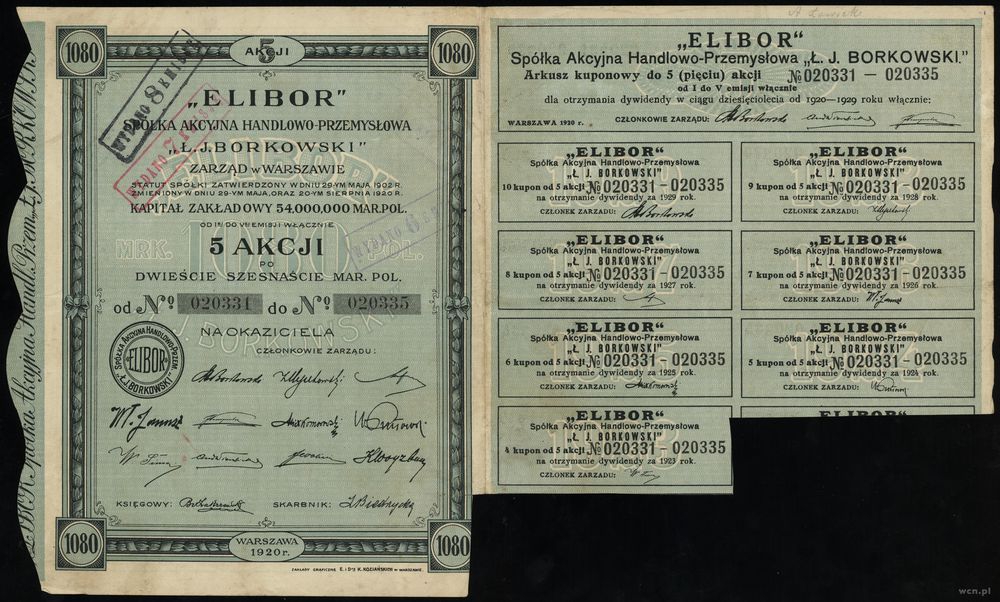 1080
5
AKCJI
1080
WYDANO 8 EMISJĘ
WYDANO 7
„ELIBOR”
SPÓŁKA AKCYJNA HANDLOWO-PRZEMYSŁOWA
„Ł.J.BORKOWSKI”
ZARZĄD w WARSZAWIE
STATUT SPÓŁKI ZATWIERDZONY W DNIU 29-YM MAJA 1902 R.
ZMIENIONY W DNIU 29-YM MAJA, ORAZ 20-YM SIERPNIA 1920 R.
KAPITAŁ ZAKŁADOWY 54,000,000 MAR.POL.
EMISJI WŁĄCZNIE
WYDANO 6
MRK. POL.
5 AKCJI
PO
DWIEŚCIE SZESNAŚCIE MAR. POL.
od № 020331 do № 020335
NA OKAZICIELA
CZŁONKOWIE ZARZĄDU:
SPÓŁKA AKCYJNA HANDLOWO-PRZEM.
„ELIBOR”
Ł.J. BORKOWSKI
KSIĘGOWY:
SKARBNIK:
1080
WARSZAWA
1920 r.
1080
ZAKŁADY GRAFICZNE E. i D-ra K. KOZIAŃSKICH w WARSZAWIE.
„ELIBOR“
Spółka Akcyjna Handlowo-Przemysłowa „Ł. J. BORKOWSKI.”
Arkusz kuponowy do 5 (pięciu) akcji № 020331 — 020335
od I do V emisji włącznie
dla otrzymania dywidendy w ciągu dziesięciolecia od 1920—1929 roku włącznie:
WARSZAWA 1920 r.
CZŁONKOWIE ZARZĄDU:
„ELIBOR“
Spółka Akcyjna Handlowo-Przemysłowa
„Ł. J. BORKOWSKI”
10 kupon od 5 akcji № 020331 - 020335
na otrzymanie dywidendy za 1929 rok.
CZŁONEK ZARZĄDU:
„ELIBOR“
Spółka Akcyjna Handlowo-Przemysłowa
„Ł. J. BORKOWSKI”
9 kupon od 5 akcji № 020331 - 020335
na otrzymanie dywidendy za 1928 rok.
CZŁONEK ZARZĄDU:
„ELIBOR“
Spółka Akcyjna Handlowo-Przemysłowa
„Ł. J. BORKOWSKI”
8 kupon od 5 akcji № 020331 - 020335
na otrzymanie dywidendy za 1927 rok.
CZŁONEK ZARZĄDU:
„ELIBOR“
Spółka Akcyjna Handlowo-Przemysłowa
„Ł. J. BORKOWSKI”
7 kupon od 5 akcji № 020331 - 020335
na otrzymanie dywidendy za 1926 rok.
CZŁONEK ZARZĄDU:
„ELIBOR“
Spółka Akcyjna Handlowo-Przemysłowa
„Ł. J. BORKOWSKI”
6 kupon od 5 akcji № 020331 - 020335
na otrzymanie dywidendy za 1925 rok.
CZŁONEK ZARZĄDU:
„ELIBOR“
Spółka Akcyjna Handlowo-Przemysłowa
„Ł. J. BORKOWSKI”
5 kupon od 5 akcji № 020331 - 020335
na otrzymanie dywidendy za 1924 rok.
CZŁONEK ZARZĄDU:
„ELIBOR“
Spółka Akcyjna Handlowo-Przemysłowa
„Ł. J. BORKOWSKI”
4 kupon od 5 akcji № 020331 - 020335
na otrzymanie dywidendy za 1923 rok.
CZŁONEK ZARZĄDU:
wcn.pl